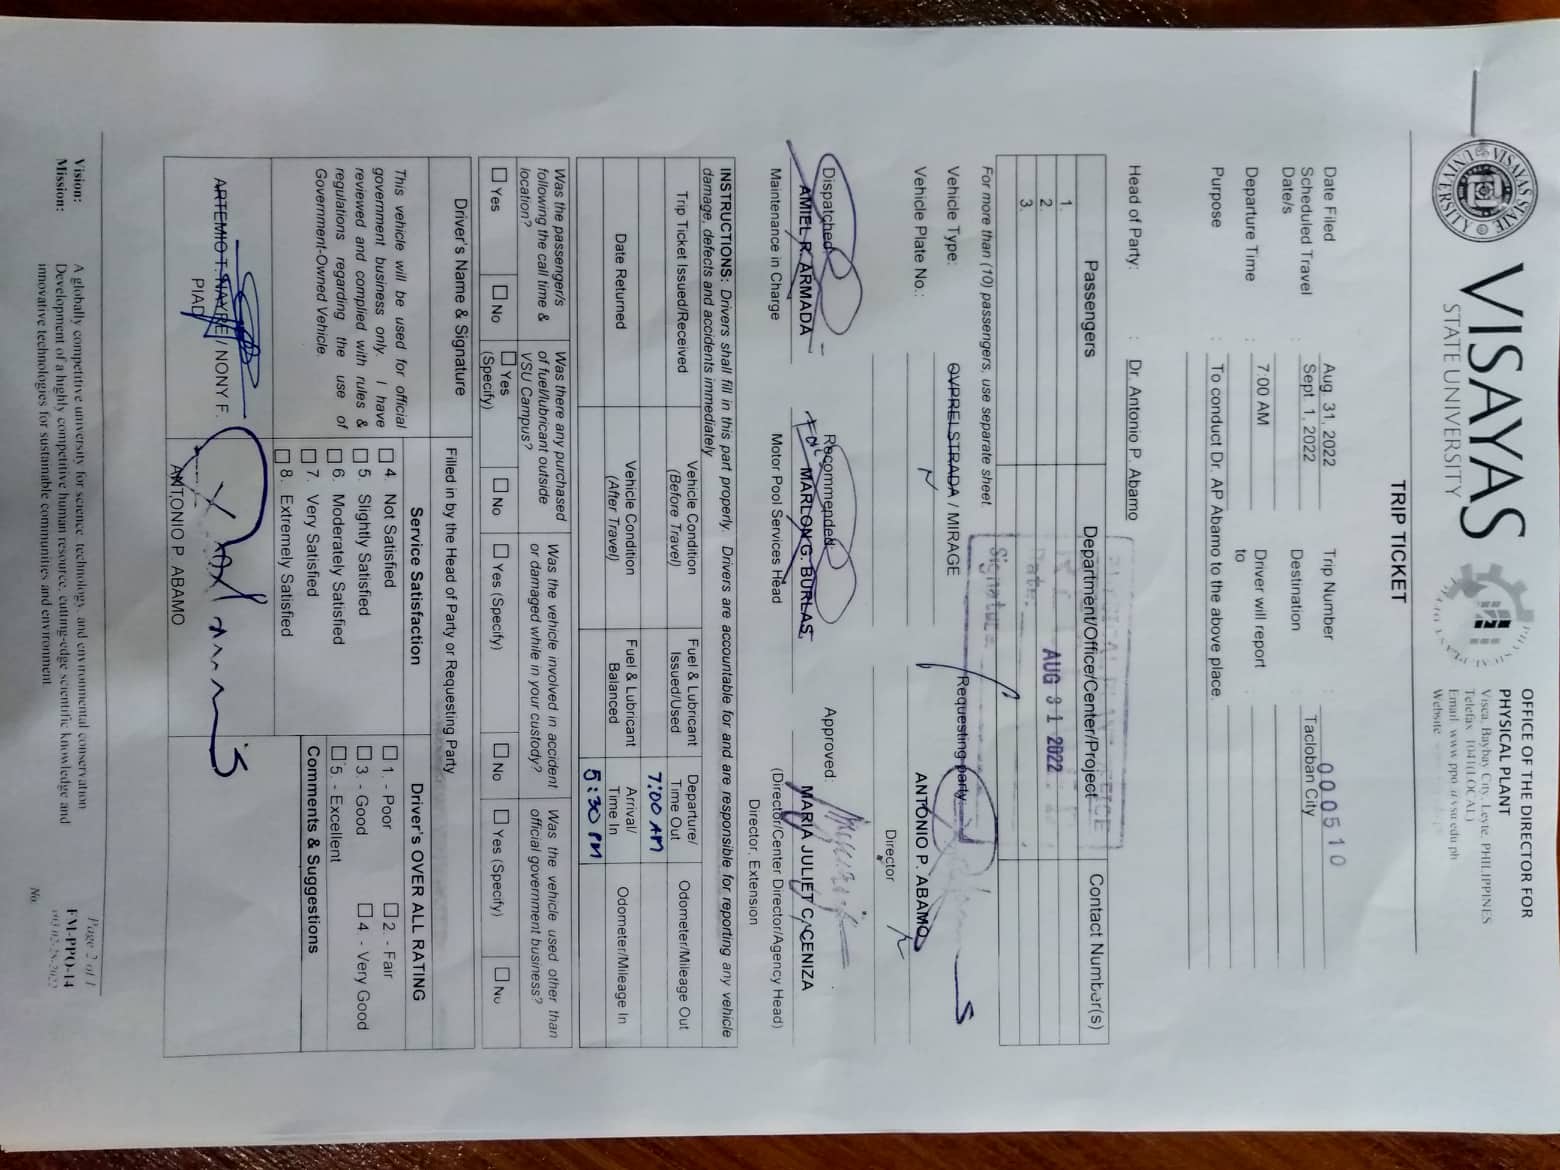 VISAYAS
STATE UNIVERSITY
OFFICE OF THE DIRECTOR FOR
PHYSICAL PLANT
Visca, Baybay City, Leyte, PHILIPPINES
Telefax: 1041(LOCAL)
Email: www.ppo@vsu.edu.ph
Website
TRIP TICKET
Date Filed Aug. 31, 2022 Trip Number : 000510
Scheduled Travel Date/s : Sept. 1, 2022 Destination : Tacloban City
Departure Time : 7:00 AM Driver will report to :
Purpose : To conduct Dr. AP Abamo to the above place.
Head of Party: : Dr. Antonio P. Abamo
Passengers Department/Office/Center/Project Contact Number(s)
1.
2. AUG 31 2022
3.
For more than (10) passengers, use separate sheet.
Signature
Requesting party
Vehicle Type: OVPRELSTRADA / MIRAGE
ANTONIO P. ABAMO
Vehicle Plate No.:
Director
Dispatched: Recommended: Approved:
AMIEL R. ARMADA MARLON G. BURLAS MARIA JULIET C. CENIZA
Maintenance in Charge Motor Pool Services Head (Director/Center Director/Agency Head)
Director, Extension
INSTRUCTIONS: Drivers shall fill in this part properly. Drivers are accountable for and are responsible for reporting any vehicle
damage, defects and accidents immediately
Trip Ticket Issued/Received Vehicle Condition (Before Travel) Fuel & Lubricant Issued/Used Departure/ Time Out Odometer/Mileage Out
7:00 AM
Date Returned Vehicle Condition (After Travel) Fuel & Lubricant Balanced Arrival/ Time In Odometer/Mileage In
5:30 PM
Was the passenger/s following the call time & location? Was there any purchased of fuel/lubricant outside VSU Campus? Was the vehicle involved in accident or damaged while in your custody? Was the vehicle used other than official government business?
☐ Yes ☐ No ☐ Yes (Specify) ☐ No ☐ Yes (Specify) ☐ No ☐ Yes (Specify) ☐ No
Driver's Name & Signature Filled in by the Head of Party or Requesting Party
This vehicle will be used for official
government business only. I have
reviewed and complied with rules &
regulations regarding the use of
Government-Owned Vehicle.
ARTEMIO T. NAYRE / NONY F.
PIAD
Service Satisfaction
☐ 4. Not Satisfied
☐ 5. Slightly Satisfied
☐ 6. Moderately Satisfied
☐ 7. Very Satisfied
☐ 8. Extremely Satisfied
ANTONIO P. ABAMO
Driver's OVER ALL RATING
☐ 1. - Poor ☐ 2. - Fair
☐ 3. - Good ☐ 4. - Very Good
☐ 5. - Excellent
Comments & Suggestions
Vision: A globally competitive university for science, technology, and environmental conservation
Mission: Development of a highly competitive human resource, cutting-edge scientific knowledge and
innovative technologies for sustainable communities and environment.
Page 2 of 1
FM-PPO-14
No.